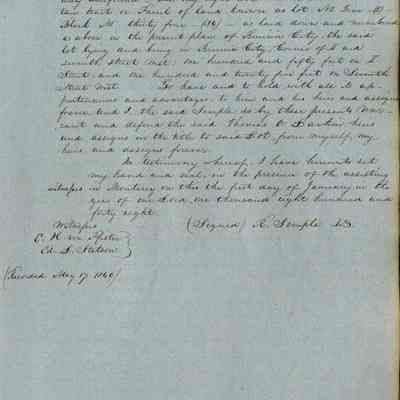 tain tract or Parcel of land known as Lot No Four (4)
Block No thirty four (34) as laid down and numbered
as above in the present plan of Benicia City, the said
lot lying and being in Benicia City, corner of I and
seventh Street West; one hundred and fifty feet on I
Street, and one hundred and twenty five feet on Seventh
Street West. To have and to hold with all its ap-
purtenances and advantages to him and his heirs and assigns
forever and I the said Semple do by these presents War-
rant and defend the said Thomas O. Larkin heirs
and assigns in the title to said Lot, from myself, my
heirs and assigns forever.
In testimony whereof, I have hereunto set
my hand and seal, in the presence of the assisting
witnesses in Monterey on this the first day of January in the
year of our Lord, one thousand eight hundred and
forty eight.
Witnesses (Signed) R. Semple LS.
C. H. 
Ed. L. Stetson
(Recorded May 17, 1849)